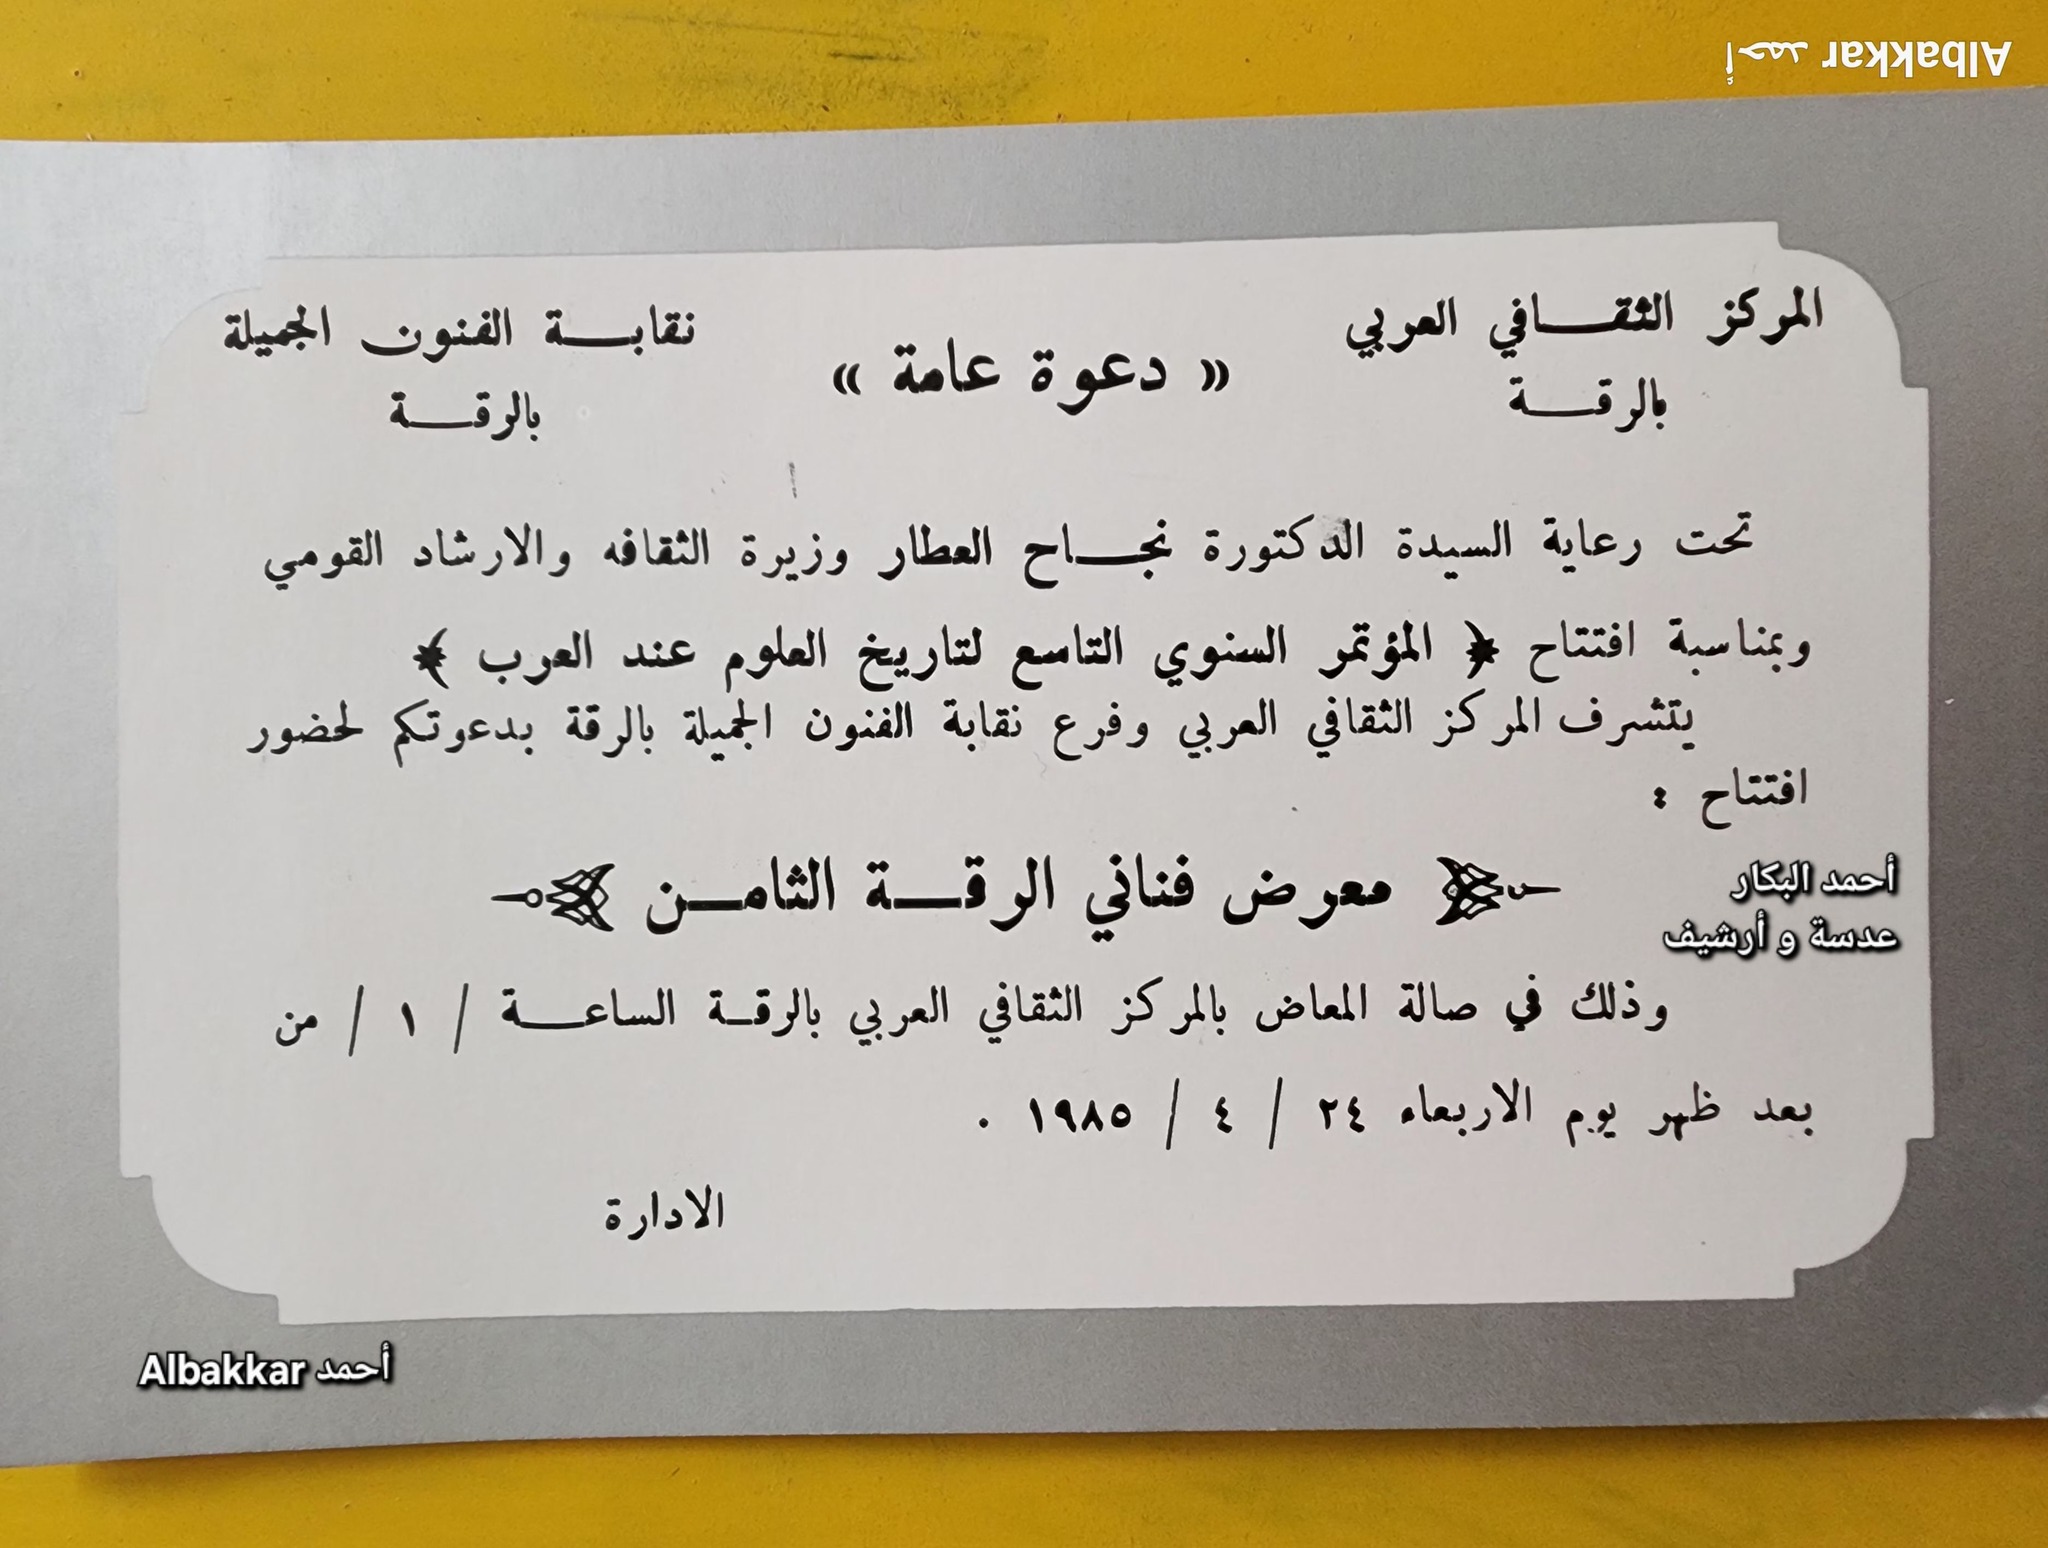 أحمد Albakkar
المركز الثقـافي العربي
بالرقـة
« دعوة عامة »
نقابـة الفنون الجميلة
بالرقـة
تحت رعاية السيدة الدكتورة نجـاح العطار وزيرة الثقافه والارشاد القومي
وبمناسبة افتتاح ﴿ المؤتمر السنوي التاسع لتاريخ العلوم عند العرب ﴾
يتشرف المركز الثقافي العربي وفرع نقابة الفنون الجميلة بالرقة بدعوتكم لحضور
افتتاح :
معرض فناني الرقـة الثامـن
أحمد البكار
عدسة و أرشيف
وذلك في صالة المعاض بالمركز الثقافي العربي بالرقـة الساعـة / ١ / من
بعد ظهر يوم الاربعاء ٢٤ / ٤ / ١٩٨٥ .
الادارة
أحمد Albakkar